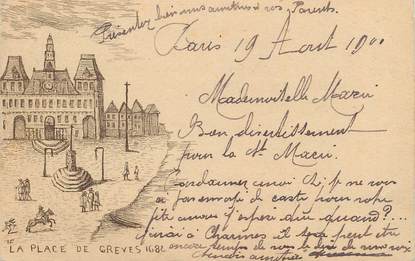 Présentez bien mes amitiés à vos Parents.
Paris 19 Aout 1900
Mademoiselle Marie
Bon divertissement
pour la Ste Marie.
Pardonnez moi si je ne vous
ai pas de carte pour votre
j'espère quand?...
j'irai à Charmes il sera peut être
encore temps de vous le dire de vive voix
LA PLACE DE GREVES 1682